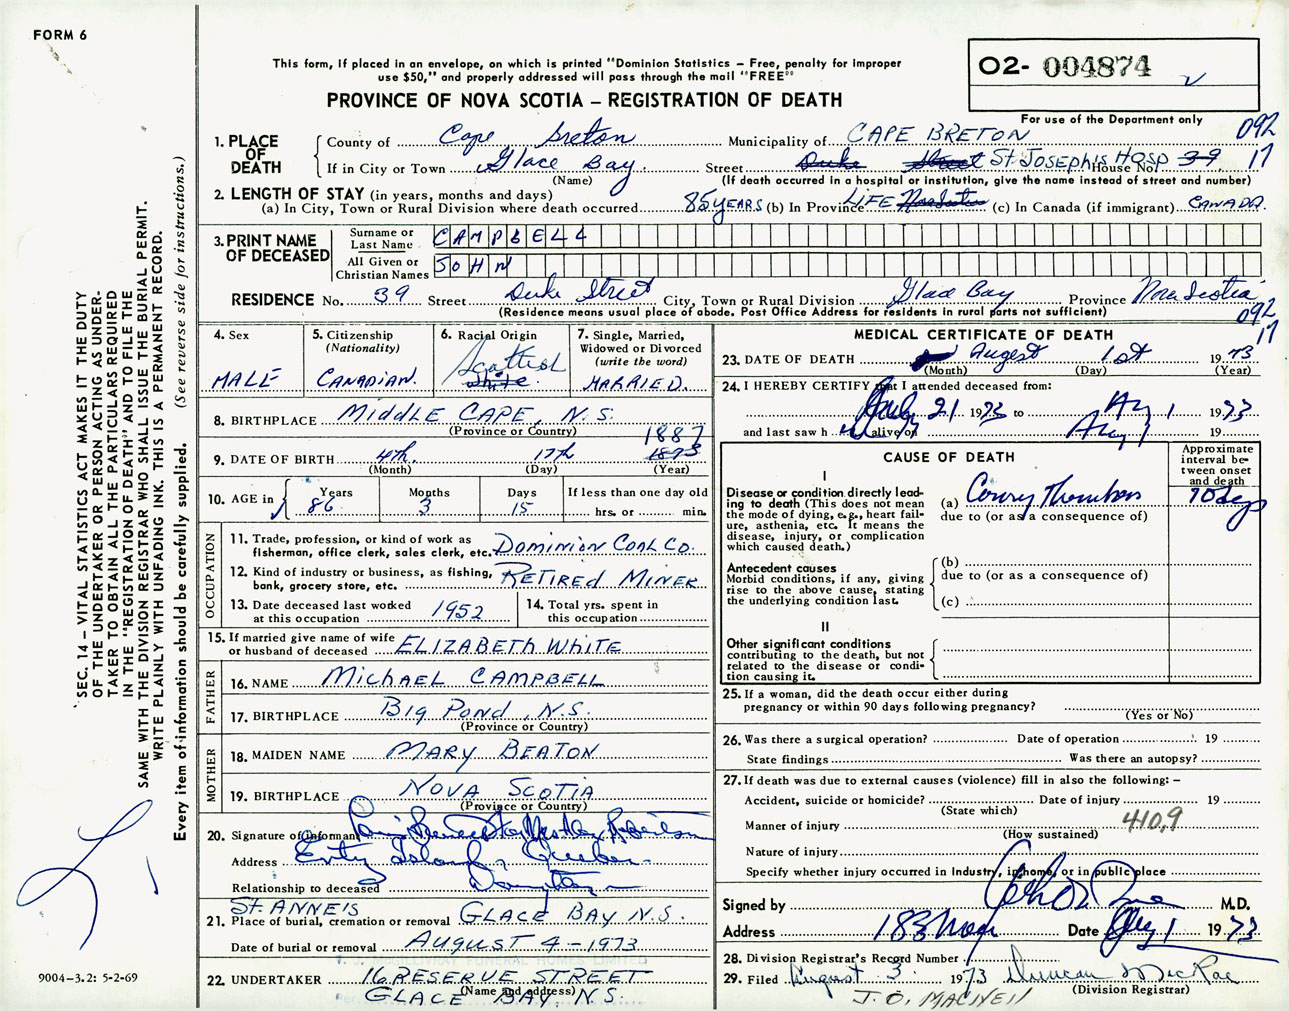 FORM 6
This form, if placed in an envelope, on which is printed "Dominion Statistics – Free, penalty for improper
use $50," and properly addressed will pass through the mail "FREE"
PROVINCE OF NOVA SCOTIA – REGISTRATION OF DEATH
O2- 004874
For use of the Department only
092
17
1. PLACE OF DEATH
County of Cape Breton Municipality of CAPE BRETON
If in City or Town Glace Bay Street Duke Street St. Joseph's Hosp House No. 39
(Name) (If death occurred in a hospital or institution, give the name instead of street and number)
2. LENGTH OF STAY (in years, months and days)
(a) In City, Town or Rural Division where death occurred 85 YEARS (b) In Province LIFE (c) In Canada (if immigrant) CANADA.
3. PRINT NAME OF DECEASED
Surname or Last Name CAMPBELL
All Given or Christian Names JOHN
RESIDENCE No. 39 Street Duke Street City, Town or Rural Division Glace Bay Province Nova Scotia
(Residence means usual place of abode. Post Office Address for residents in rural parts not sufficient)
092
17
4. Sex
MALE
5. Citizenship
(Nationality)
CANADIAN.
6. Racial Origin
Scottish
White
7. Single, Married,
Widowed or Divorced
(write the word)
MARRIED.
8. BIRTHPLACE MIDDLE CAPE, N.S.
(Province or Country)
1887
9. DATE OF BIRTH 4th 17th 1873
(Month) (Day) (Year)
10. AGE in Years 86 Months 3 Days 15 If less than one day old
hrs. or min.
OCCUPATION
11. Trade, profession, or kind of work as
fisherman, office clerk, sales clerk, etc. DOMINION COAL CO.
12. Kind of industry or business, as fishing,
bank, grocery store, etc. RETIRED MINER
13. Date deceased last worked
at this occupation 1952
14. Total yrs. spent in
this occupation
15. If married give name of wife
or husband of deceased ELIZABETH WHITE
FATHER
16. NAME MICHAEL CAMPBELL
17. BIRTHPLACE BIG POND, N.S.
(Province or Country)
MOTHER
18. MAIDEN NAME MARY BEATON
19. BIRTHPLACE NOVA SCOTIA
(Province or Country)
20. Signature of Informant
Address Island, Quebec
Relationship to deceased Daughter
ST. ANNE'S
21. Place of burial, cremation or removal GLACE BAY N.S.
Date of burial or removal AUGUST 4 - 1973
FUNERAL HOMES LIMITED
22. UNDERTAKER 16 RESERVE STREET
(Name and address)
GLACE BAY, N.S.
MEDICAL CERTIFICATE OF DEATH
23. DATE OF DEATH August 1st 1973
(Month) (Day) (Year)
24. I HEREBY CERTIFY that I attended deceased from:
July 21 1973 to Aug 1 1973
and last saw h alive on Aug 1 19
CAUSE OF DEATH
Approximate
interval be-
tween onset
and death
I
Disease or condition directly lead-
ing to death (This does not mean
the mode of dying, e.g., heart fail-
ure, asthenia, etc. It means the
disease, injury, or complication
which caused death.)
(a) 10 days
due to (or as a consequence of)
Antecedent causes
Morbid conditions, if any, giving
rise to the above cause, stating
the underlying condition last.
(b)
due to (or as a consequence of)
(c)
II
Other significant conditions
contributing to the death, but not
related to the disease or condi-
tion causing it.
25. If a woman, did the death occur either during
pregnancy or within 90 days following pregnancy?
(Yes or No)
26. Was there a surgical operation? Date of operation 19
State findings Was there an autopsy?
27. If death was due to external causes (violence) fill in also the following: –
Accident, suicide or homicide? Date of injury 19
(State which)
Manner of injury 410.9
(How sustained)
Nature of injury
Specify whether injury occurred in Industry, in home, or in public place
Signed by M.D.
Address 183 Date Aug 1 1973
28. Division Registrar's Record Number
29. Filed August 3 1973 Duncan MacRae
(Division Registrar)
J. O. MACNEIL
SEC. 14 – VITAL STATISTICS ACT MAKES IT THE DUTY
OF THE UNDERTAKER OR PERSON ACTING AS UNDER-
TAKER TO OBTAIN ALL THE PARTICULARS REQUIRED
IN THE "REGISTRATION OF DEATH" AND TO FILE THE
SAME WITH THE DIVISION REGISTRAR WHO SHALL ISSUE THE BURIAL PERMIT.
WRITE PLAINLY WITH UNFADING INK. THIS IS A PERMANENT RECORD.
Every item of information should be carefully supplied. (See reverse side for instructions.)
9004–3.2: 5-2-69